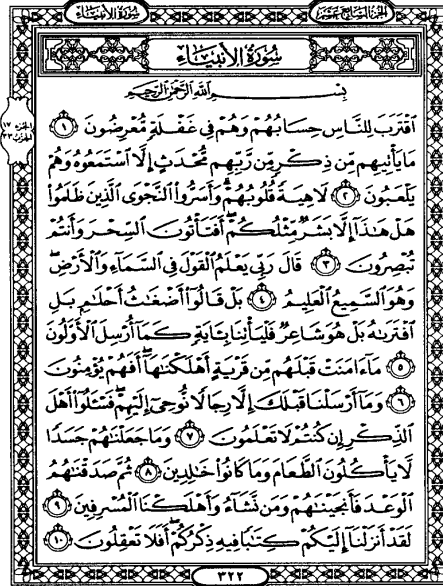 سُورَةُ الأَنبيَاء
الجزء السابع عشر
سُورَةُ الأَنبيَاءِ
بِسْمِ ٱللَّهِ ٱلرَّحْمَٰنِ ٱلرَّحِيمِ
ٱقْتَرَبَ لِلنَّاسِ حِسَابُهُمْ وَهُمْ فِى غَفْلَةٍ مُّعْرِضُونَ ١
مَا يَأْتِيهِم مِّن ذِكْرٍ مِّن رَّبِّهِم مُّحْدَثٍ إِلَّا ٱسْتَمَعُوهُ وَهُمْ
يَلْعَبُونَ ٢ لَاهِيَةً قُلُوبُهُمْ ۗ وَأَسَرُّوا۟ ٱلنَّجْوَى ٱلَّذِينَ ظَلَمُوا۟
هَلْ هَٰذَآ إِلَّا بَشَرٌ مِّثْلُكُمْ ۖ أَفَتَأْتُونَ ٱلسِّحْرَ وَأَنتُمْ
تُبْصِرُونَ ٣ قَالَ رَبِّى يَعْلَمُ ٱلْقَوْلَ فِى ٱلسَّمَآءِ وَٱلْأَرْضِ ۖ
وَهُوَ ٱلسَّمِيعُ ٱلْعَلِيمُ ٤ بَلْ قَالُوٓا۟ أَضْغَٰثُ أَحْلَٰمٍۭ بَلِ
ٱفْتَرَىٰهُ بَلْ هُوَ شَاعِرٌ فَلْيَأْتِنَا بِـَٔايَةٍ كَمَآ أُرْسِلَ ٱلْأَوَّلُونَ
٥ مَآ ءَامَنَتْ قَبْلَهُم مِّن قَرْيَةٍ أَهْلَكْنَٰهَآ ۖ أَفَهُمْ يُؤْمِنُونَ
٦ وَمَآ أَرْسَلْنَا قَبْلَكَ إِلَّا رِجَالًا نُّوحِىٓ إِلَيْهِمْ ۖ فَسْـَٔلُوٓا۟ أَهْلَ
ٱلذِّكْرِ إِن كُنتُمْ لَا تَعْلَمُونَ ٧ وَمَا جَعَلْنَٰهُمْ جَسَدًا
لَّا يَأْكُلُونَ ٱلطَّعَامَ وَمَا كَانُوا۟ خَٰلِدِينَ ٨ ثُمَّ صَدَقْنَٰهُمُ
ٱلْوَعْدَ فَأَنجَيْنَٰهُمْ وَمَن نَّشَآءُ وَأَهْلَكْنَا ٱلْمُسْرِفِينَ ٩
لَقَدْ أَنزَلْنَآ إِلَيْكُمْ كِتَٰبًا فِيهِ ذِكْرُكُمْ ۖ أَفَلَا تَعْقِلُونَ ١٠
الجزء ١٧
الحزب ٣٣
٣٢٢